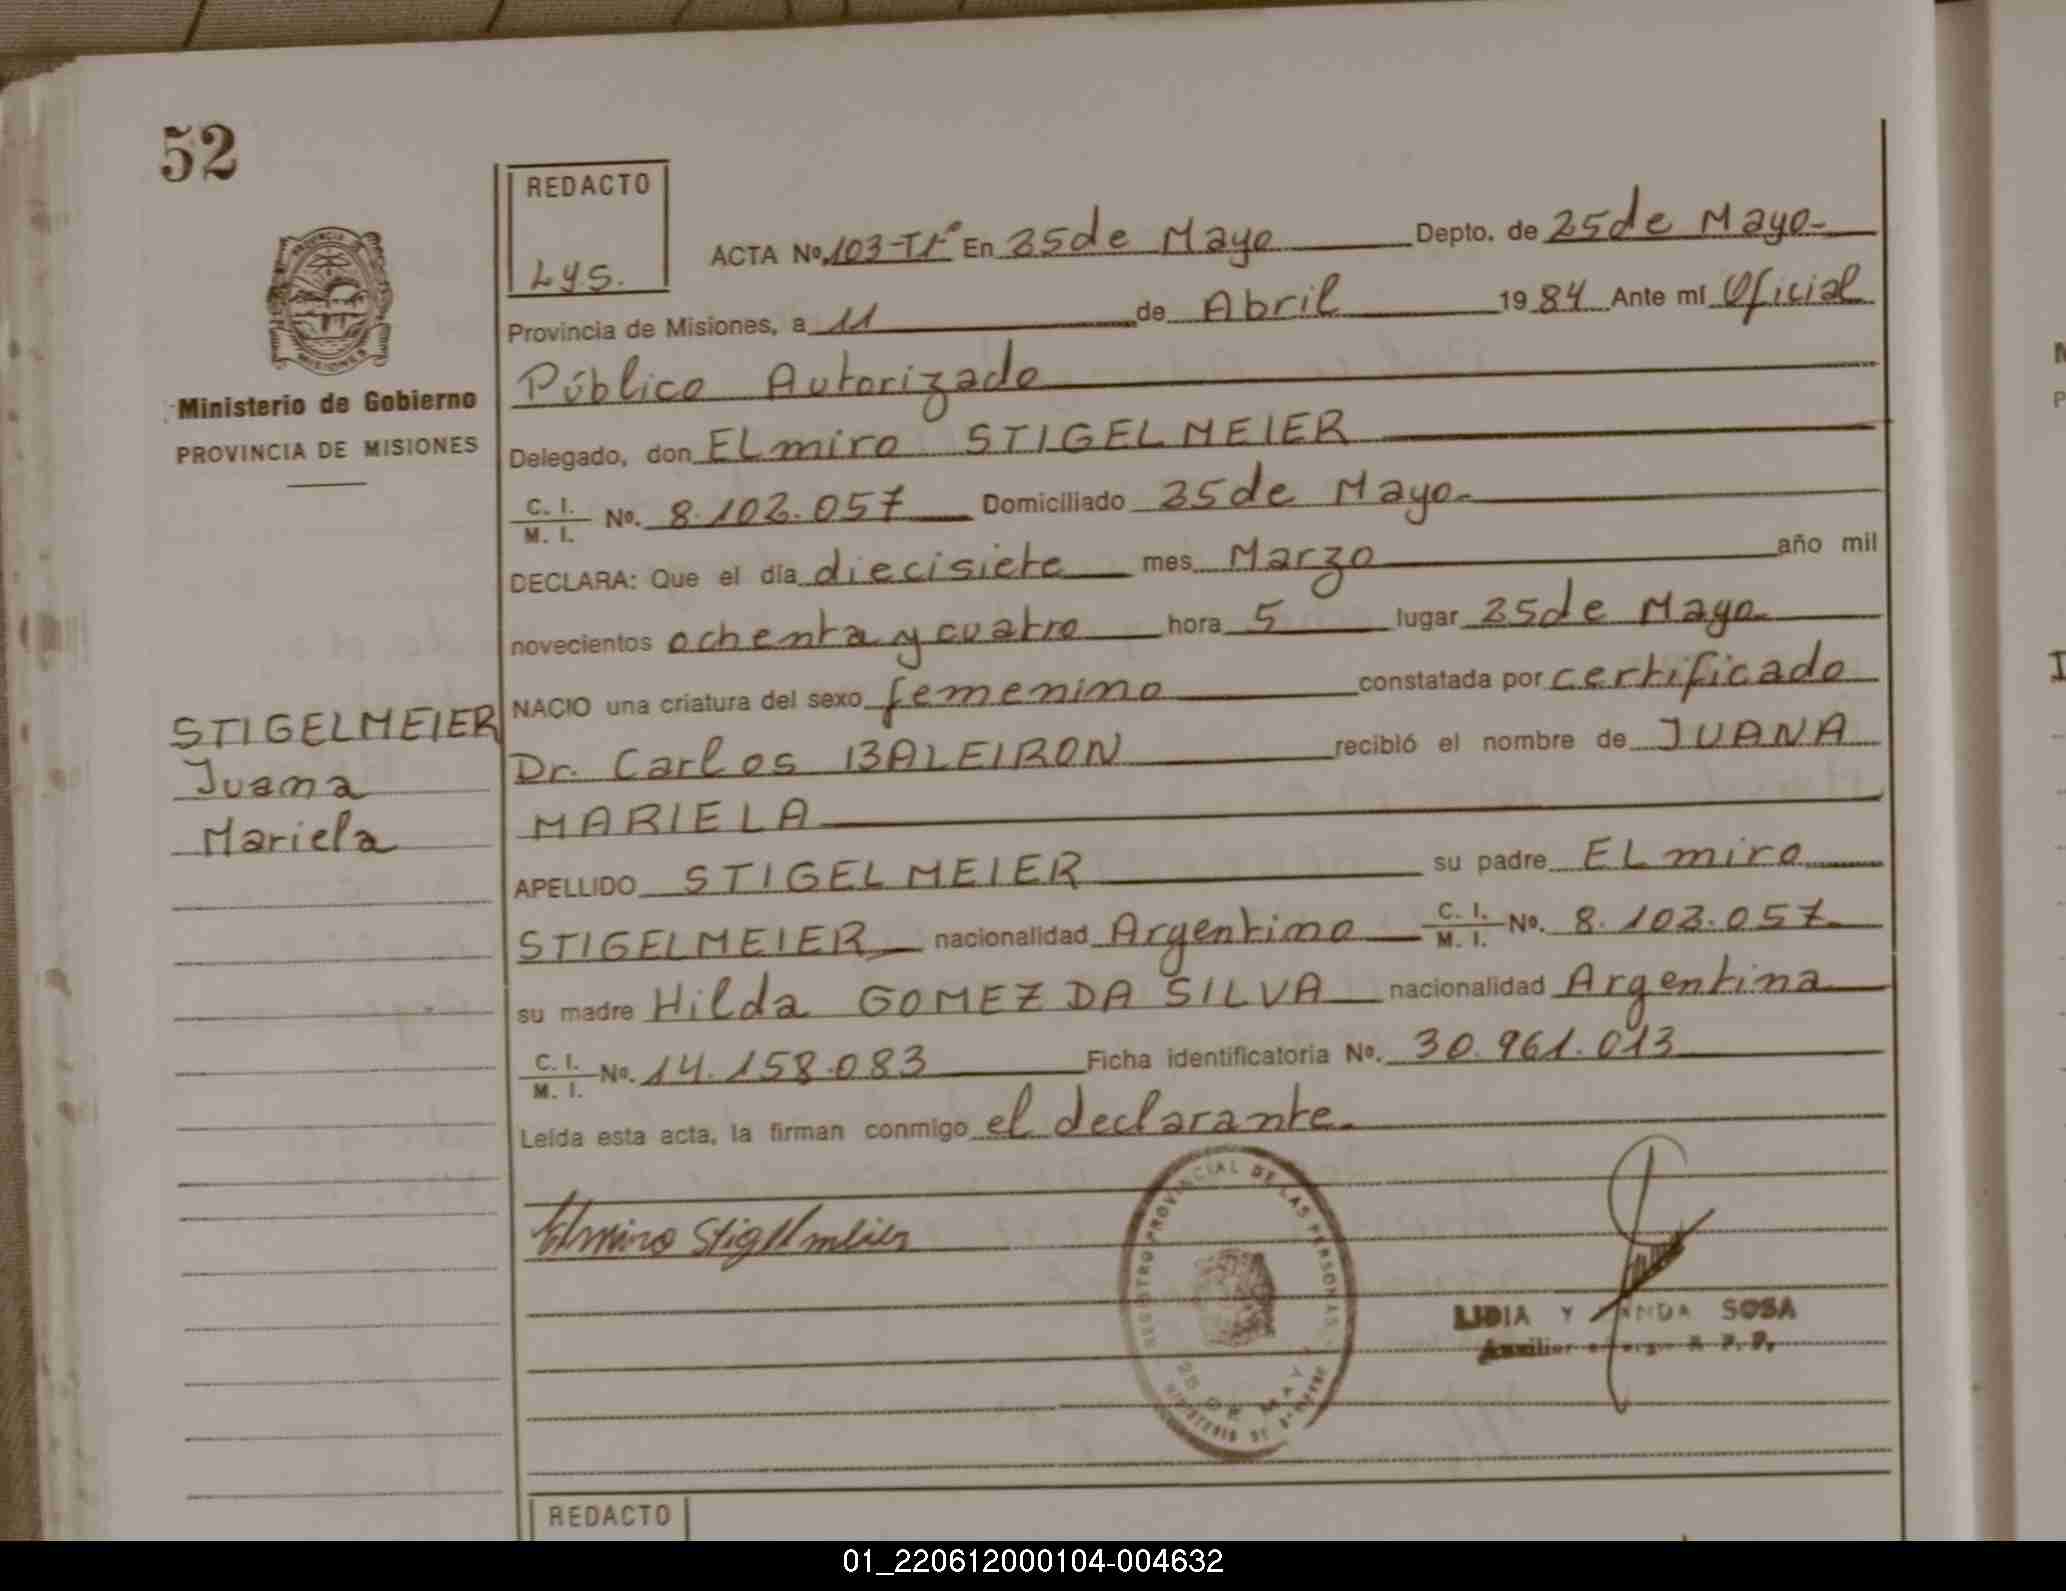 52
REDACTO
Lys.
ACTA No. 103-T1° En 25 de Mayo Depto. de 25 de Mayo-
Provincia de Misiones, a 11 de Abril 1984 Ante mí Oficial
Público Autorizado
Ministerio de Gobierno
PROVINCIA DE MISIONES
Delegado, don ELmiro STIGELMEIER
C. I. / M. I. No. 8.102.057 Domiciliado 25 de Mayo-
DECLARA: Que el día diecisiete mes Marzo año mil
novecientos ochenta y cuatro hora 5 lugar 25 de Mayo-
NACIO una criatura del sexo femenino constatada por certificado
Dr. Carlos BALEIRON recibió el nombre de JUANA
MARIELA
STIGELMEIER
Juana
Mariela
APELLIDO STIGELMEIER su padre ELmiro
STIGELMEIER nacionalidad Argentino C. I. / M. I. No. 8.102.057
su madre Hilda GOMEZ DA SILVA nacionalidad Argentina
C. I. / M. I. No. 14.158.083 Ficha identificatoria No. 30.961.013
Leída esta acta, la firman conmigo el declarante.
Elmiro Stigelmeier
REGISTRO PROVINCIAL DE LAS PERSONAS
25 DE MAYO
MINISTERIO DE GOBIERNO
LIDIA Y SOSA
REDACTO
01_220612000104-004632